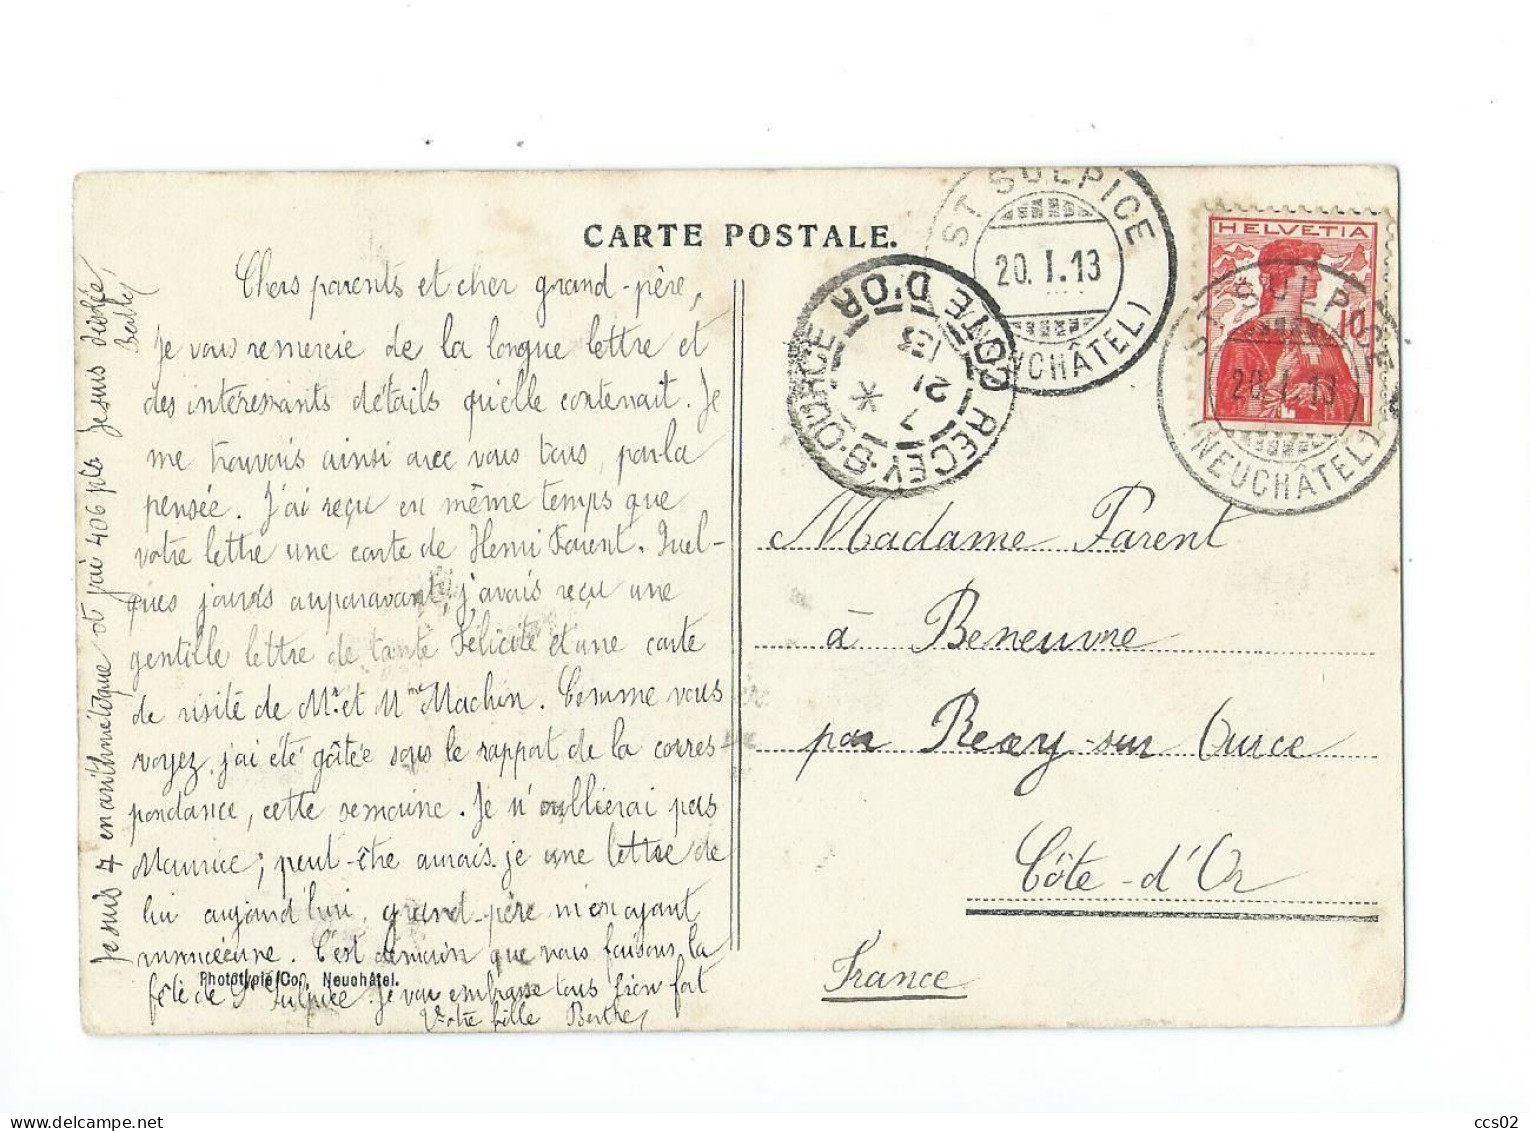 CARTE POSTALE.
ST SULPICE
20.I.13
(NEUCHÂTEL)
HELVETIA
10
ST SULPICE
20.I.13
(NEUCHÂTEL)
RECEY-S-OURCE
CÔTE D'OR
21
13
Chers parents et cher grand-père,
je vous remercie de la longue lettre et
des intéressants détails qu'elle contenait. Je
me trouvais ainsi avec vous tous, par la
pensée. J'ai reçu en même temps que
votre lettre une carte de Henri Parent. Quel-
ques jours auparavant, j'avais reçu une
gentille lettre de tante Félicité et une carte
de visite de Mr. et Mme Machin. Comme vous
voyez j'ai été gâtée sous le rapport de la corres-
pondance, cette semaine. Je n'oublierai pas
Maurice; peut-être aurais-je une lettre de
lui aujourd'hui, grand-père m'en ayant
C'est demain que nous faisons la
fête de St Sulpice. Je vous embrasse tous bien fort
Votre fille Berthe
Je suis 4 en arithmétique et j'ai 406 pts Je suis désolée,
Berthe
Phototypie Co., Neuchâtel.
Madame Parent
à Beneuvre
par Recey-sur Ource
Côte-d'Or
France
ccs02